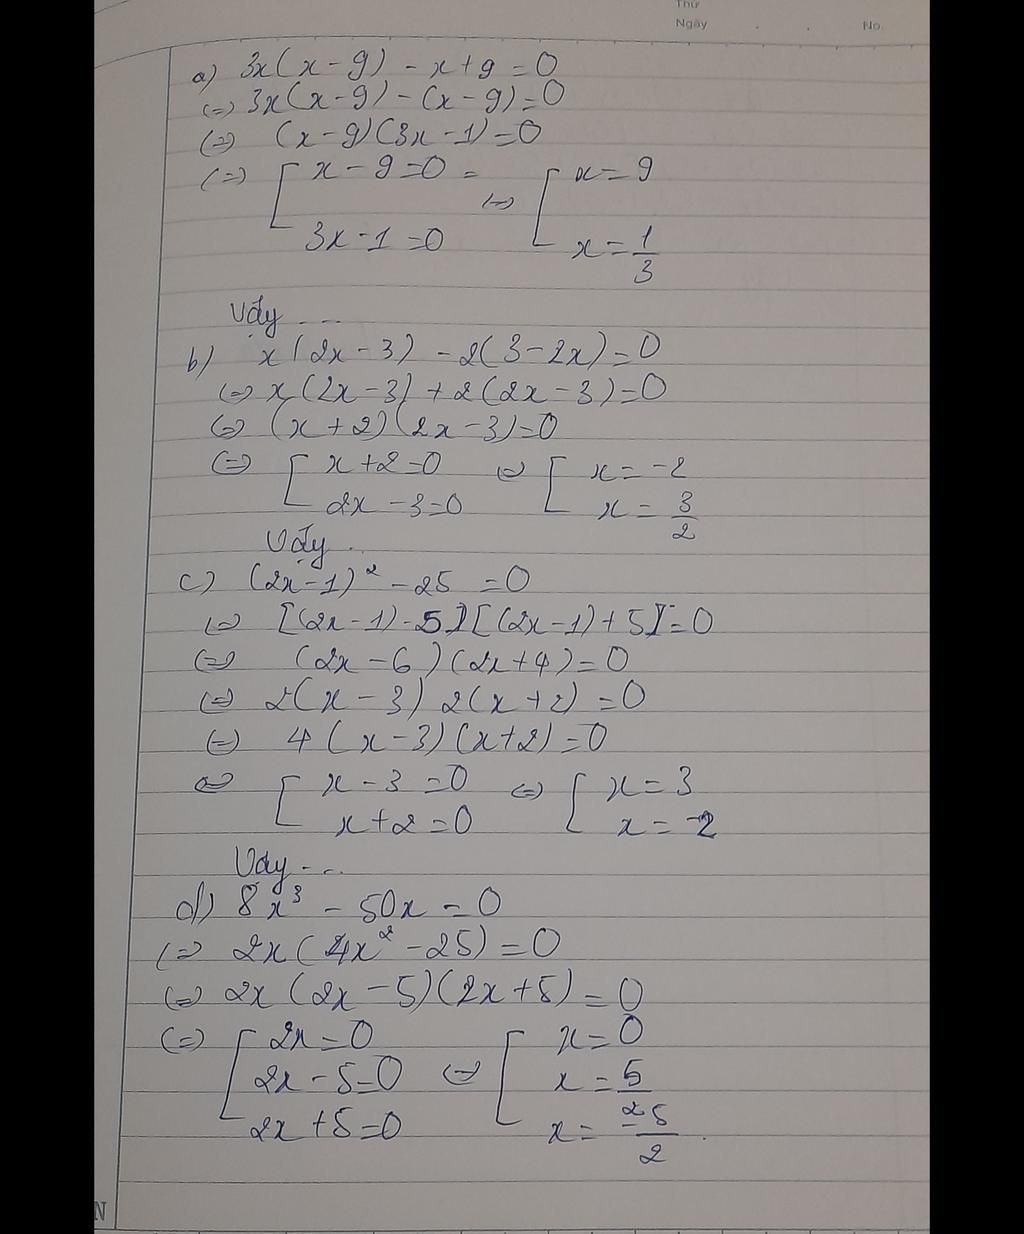 Thứ
Ngày . . No.
a) 3x(x-9) - x+9 = 0
(=) 3x(x-9) - (x-9) = 0
(=) (x-9)(3x-1) = 0
(=) [ x-9=0 = (=) [ x = 9
3x-1=0 x = 1/3
Vậy ...
b) x(2x-3) - 2(3-2x) = 0
(=) x(2x-3) + 2(2x-3) = 0
(=) (x+2)(2x-3) = 0
(=) [ x+2=0 (=) [ x = -2
2x-3=0 x = 3/2
Vậy ..
c) (2x-1)² - 25 = 0
(=) [(2x-1)-5][(2x-1)+5] = 0
(=) (2x-6)(2x+4) = 0
(=) 2(x-3) 2(x+2) = 0
(=) 4(x-3)(x+2) = 0
(=) [ x-3=0 (=) [ x = 3
x+2=0 x = -2
Vậy ...
d) 8x³ - 50x = 0
(=) 2x(4x²-25) = 0
(=) 2x(2x-5)(2x+5) = 0
(=) [ 2x=0 (=) [ x = 0
2x-5=0 x = 5/2
2x+5=0 x = -5/2 .
N